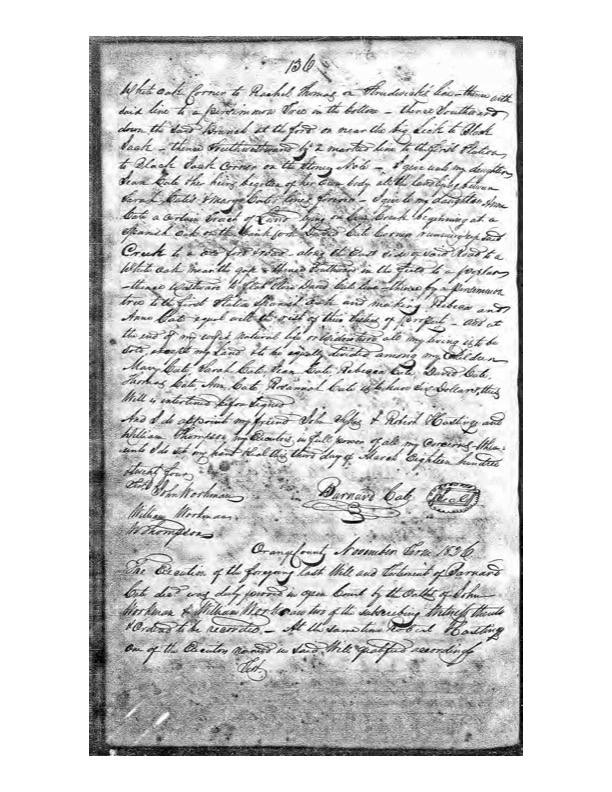 136
White oak Corner to Rachel Thomas on line thence with
said line to a persimmon tree in the bottom - thence Southward
down the said Branch at the ford on near the big Lick to Black
Jack - thence Southward by a marked line to the first Station
to Black Jack Corner on the Stoney - I give unto my daughter
Jean Cate & her heirs begotten of her own body all the land lying between
Sarah Cate's & Mary Cate's lines forever - I give to my daughter Ann
Cate a certain tract of Land lying on Cane Creek beginning at a
Spanish Oak Cate Corner running up said
Creek to a ford road - along the East side of said Road to a
White oak near the gap - thence Southward in the field to a
- thence Westward to David Cate line - thence by a persimmon
tree to the first Station Spanish Oak and making Rebeca and
Anne Cate equal with the rest of this of property - and at
the end of my wife's natural life or widowhood all my living is to be
sold, except my Land & to be equally divided among my Children
Mary Cate Sarah Cate, Jean Cate, Rebecca Cate, David Cate,
Thomas Cate, Ann Cate Rosannah Cate is to have Six Dollars, this
Will is upon Signed
And I do appoint my friend John & Robert Hastings and
William Thompson my Executors in full power of all my Concerns. Where-
unto I do set my hand & Seal this third day of March Eighteen hundred
& twenty four
John Workman
Barnard Cate
Seal
William Workman
W Thompson
Orange County November Term 1826
The Execution of the foregoing last Will and Testament of Barnard
Cate decd was duly proved in open Court by the Oaths of John
Workman & William Workman two of the subscribing Witnesses thereto
& Ordered to be recorded. - At the same time Robert Hastings
one of the Executors named in said Will qualified accordingly
Test